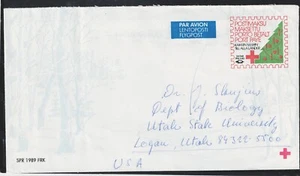 PAR AVION
LENTOPOSTI
FLYGPOST
POSTIMAKSU
MAKSETTU
PORTO BETALT
POST PAYÉ
Dr. J.
Dept of Biology
Utah State University
Logan, Utah 84322-5500
USA
SPR 1989 FRK